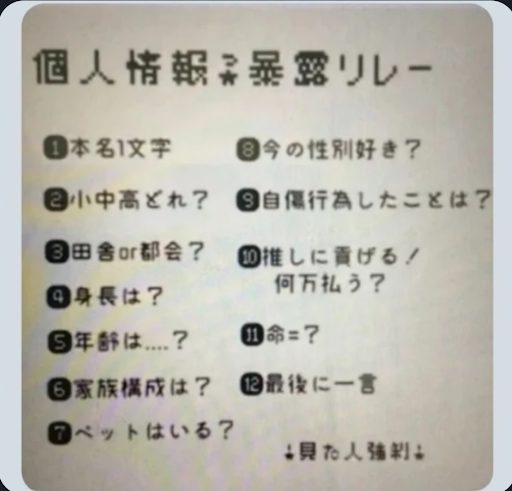 個人情報?★暴露リレー
1本名1文字
2小中高どれ?
3田舎or都会?
4身長は?
5年齢は....?
6家族構成は?
7ペットはいる?
8今の性別好き?
9自傷行為したことは?
10推しに貢げる!
何万払う?
11命=?
12最後に一言
↓見た人強制↓